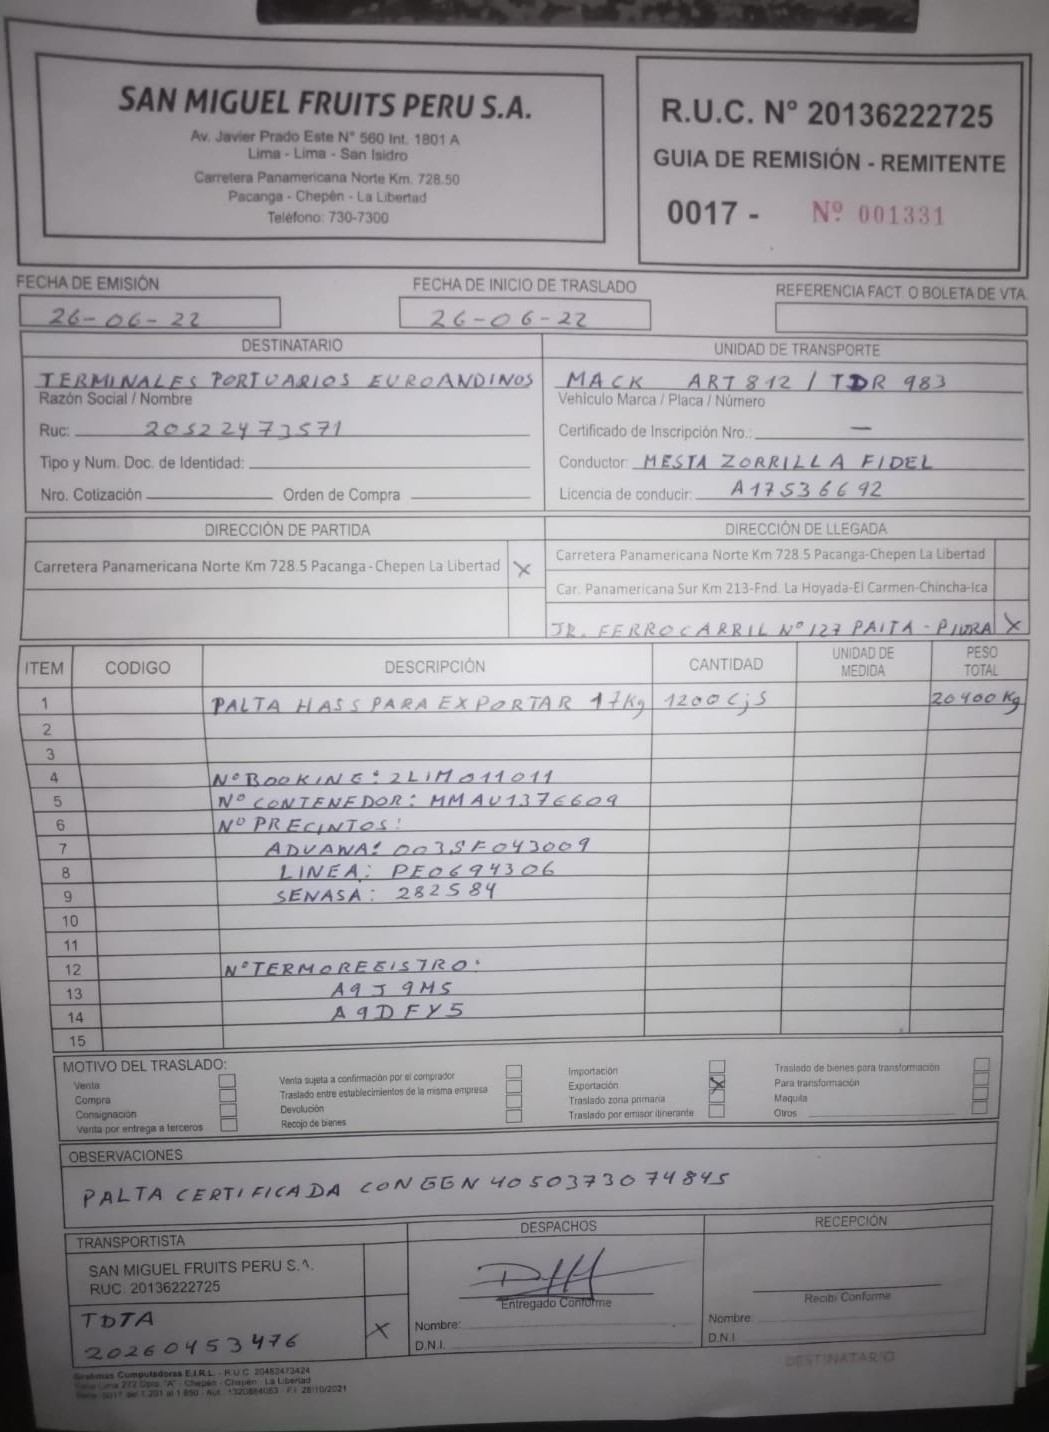 SAN MIGUEL FRUITS PERU S.A.
Av. Javier Prado Este N° 560 Int. 1801 A
Lima - Lima - San Isidro
Carretera Panamericana Norte Km. 728.50
Pacanga - Chepén - La Libertad
Teléfono: 730-7300
R.U.C. N° 20136222725
GUIA DE REMISIÓN - REMITENTE
0017 - Nº 001331
FECHA DE EMISIÓN
26-06-22
FECHA DE INICIO DE TRASLADO
26-06-22
REFERENCIA FACT. O BOLETA DE VTA.
DESTINATARIO
TERMINALES PORTUARIOS EUROANDINOS
Razón Social / Nombre
Ruc: 20522473571
Tipo y Num. Doc. de Identidad:
Nro. Cotización Orden de Compra
UNIDAD DE TRANSPORTE
MACK ART812 / TDR 983
Vehículo Marca / Placa / Número
Certificado de Inscripción Nro.: —
Conductor: MESTA ZORRILLA FIDEL
Licencia de conducir: A17536692
DIRECCIÓN DE PARTIDA
Carretera Panamericana Norte Km 728.5 Pacanga-Chepen La Libertad X
DIRECCIÓN DE LLEGADA
Carretera Panamericana Norte Km 728.5 Pacanga-Chepen La Libertad
Car. Panamericana Sur Km 213-Fnd. La Hoyada-El Carmen-Chincha-Ica
JR. FERROCARRIL N° 127 PAITA - PIURA X
ITEM CODIGO DESCRIPCIÓN CANTIDAD UNIDAD DE MEDIDA PESO TOTAL
1 PALTA HASS PARA EXPORTAR 17Kg 1200 CjS 20400 Kg
2
3
4 N° BOOKING: 2LIM011011
5 N° CONTENEDOR: MMAU1376609
6 N° PRECINTOS:
7 ADUANA: 003SF043009
8 LINEA: PE0694306
9 SENASA: 282584
10
11
12 N° TERMOREGISTRO:
13 A9J9MS
14 A9DFY5
15
MOTIVO DEL TRASLADO:
Venta
Compra
Consignación
Venta por entrega a terceros
Venta sujeta a confirmación por el comprador
Traslado entre establecimientos de la misma empresa
Devolución
Recojo de bienes
Importación
Exportación X
Traslado zona primaria
Traslado por emisor itinerante
Traslado de bienes para transformación
Para transformación
Maquila
Otros
OBSERVACIONES
PALTA CERTIFICADA CON GGN 4050373074845
TRANSPORTISTA
SAN MIGUEL FRUITS PERU S.A.
RUC: 20136222725
TDTA
20260453476 X
DESPACHOS
Entregado Conforme
Nombre:
D.N.I.
RECEPCIÓN
Recibí Conforme
Nombre:
D.N.I.
DESTINATARIO
Computadoras E.I.R.L. - R.U.C. 20482473424
"A" - Chepén - Chepén - La Libertad
F.I. 28/10/2021